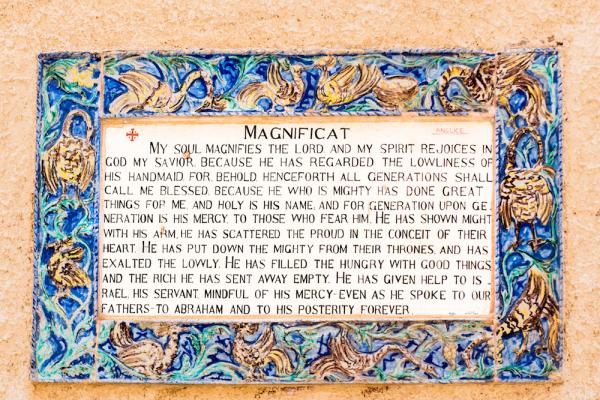 MAGNIFICAT
ANGLICE
MY SOUL MAGNIFIES THE LORD, AND MY SPIRIT REJOICES IN
GOD MY SAVIOR. BECAUSE HE HAS REGARDED THE LOWLINESS OF
HIS HANDMAID FOR, BEHOLD, HENCEFORTH ALL GENERATIONS SHALL
CALL ME BLESSED, BECAUSE HE WHO IS MIGHTY HAS DONE GREAT
THINGS FOR ME, AND HOLY IS HIS NAME, AND FOR GENERATION UPON GE
NERATION IS HIS MERCY, TO THOSE WHO FEAR HIM. HE HAS SHOWN MIGHT
WITH HIS ARM, HE HAS SCATTERED THE PROUD IN THE CONCEIT OF THEIR
HEART. HE HAS PUT DOWN THE MIGHTY FROM THEIR THRONES, AND HAS
EXALTED THE LOWLY. HE HAS FILLED THE HUNGRY WITH GOOD THINGS
AND THE RICH HE HAS SENT AWAY EMPTY. HE HAS GIVEN HELP TO IS
RAEL, HIS SERVANT, MINDFUL OF HIS MERCY-EVEN AS HE SPOKE TO OUR
FATHERS-TO ABRAHAM AND TO HIS POSTERITY FOREVER